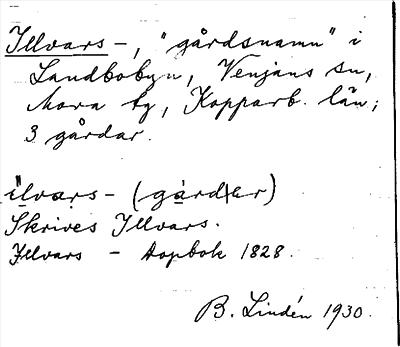 Illvars –, "gårdsnamn" i
Landbobyn, Venjans sn,
Mora tg, Kopparb. län;
3 gårdar.
ilvars – (gård|er)
Skrives Illvars.
Illvars – Dopbok 1828.
B. Lindén 1930.